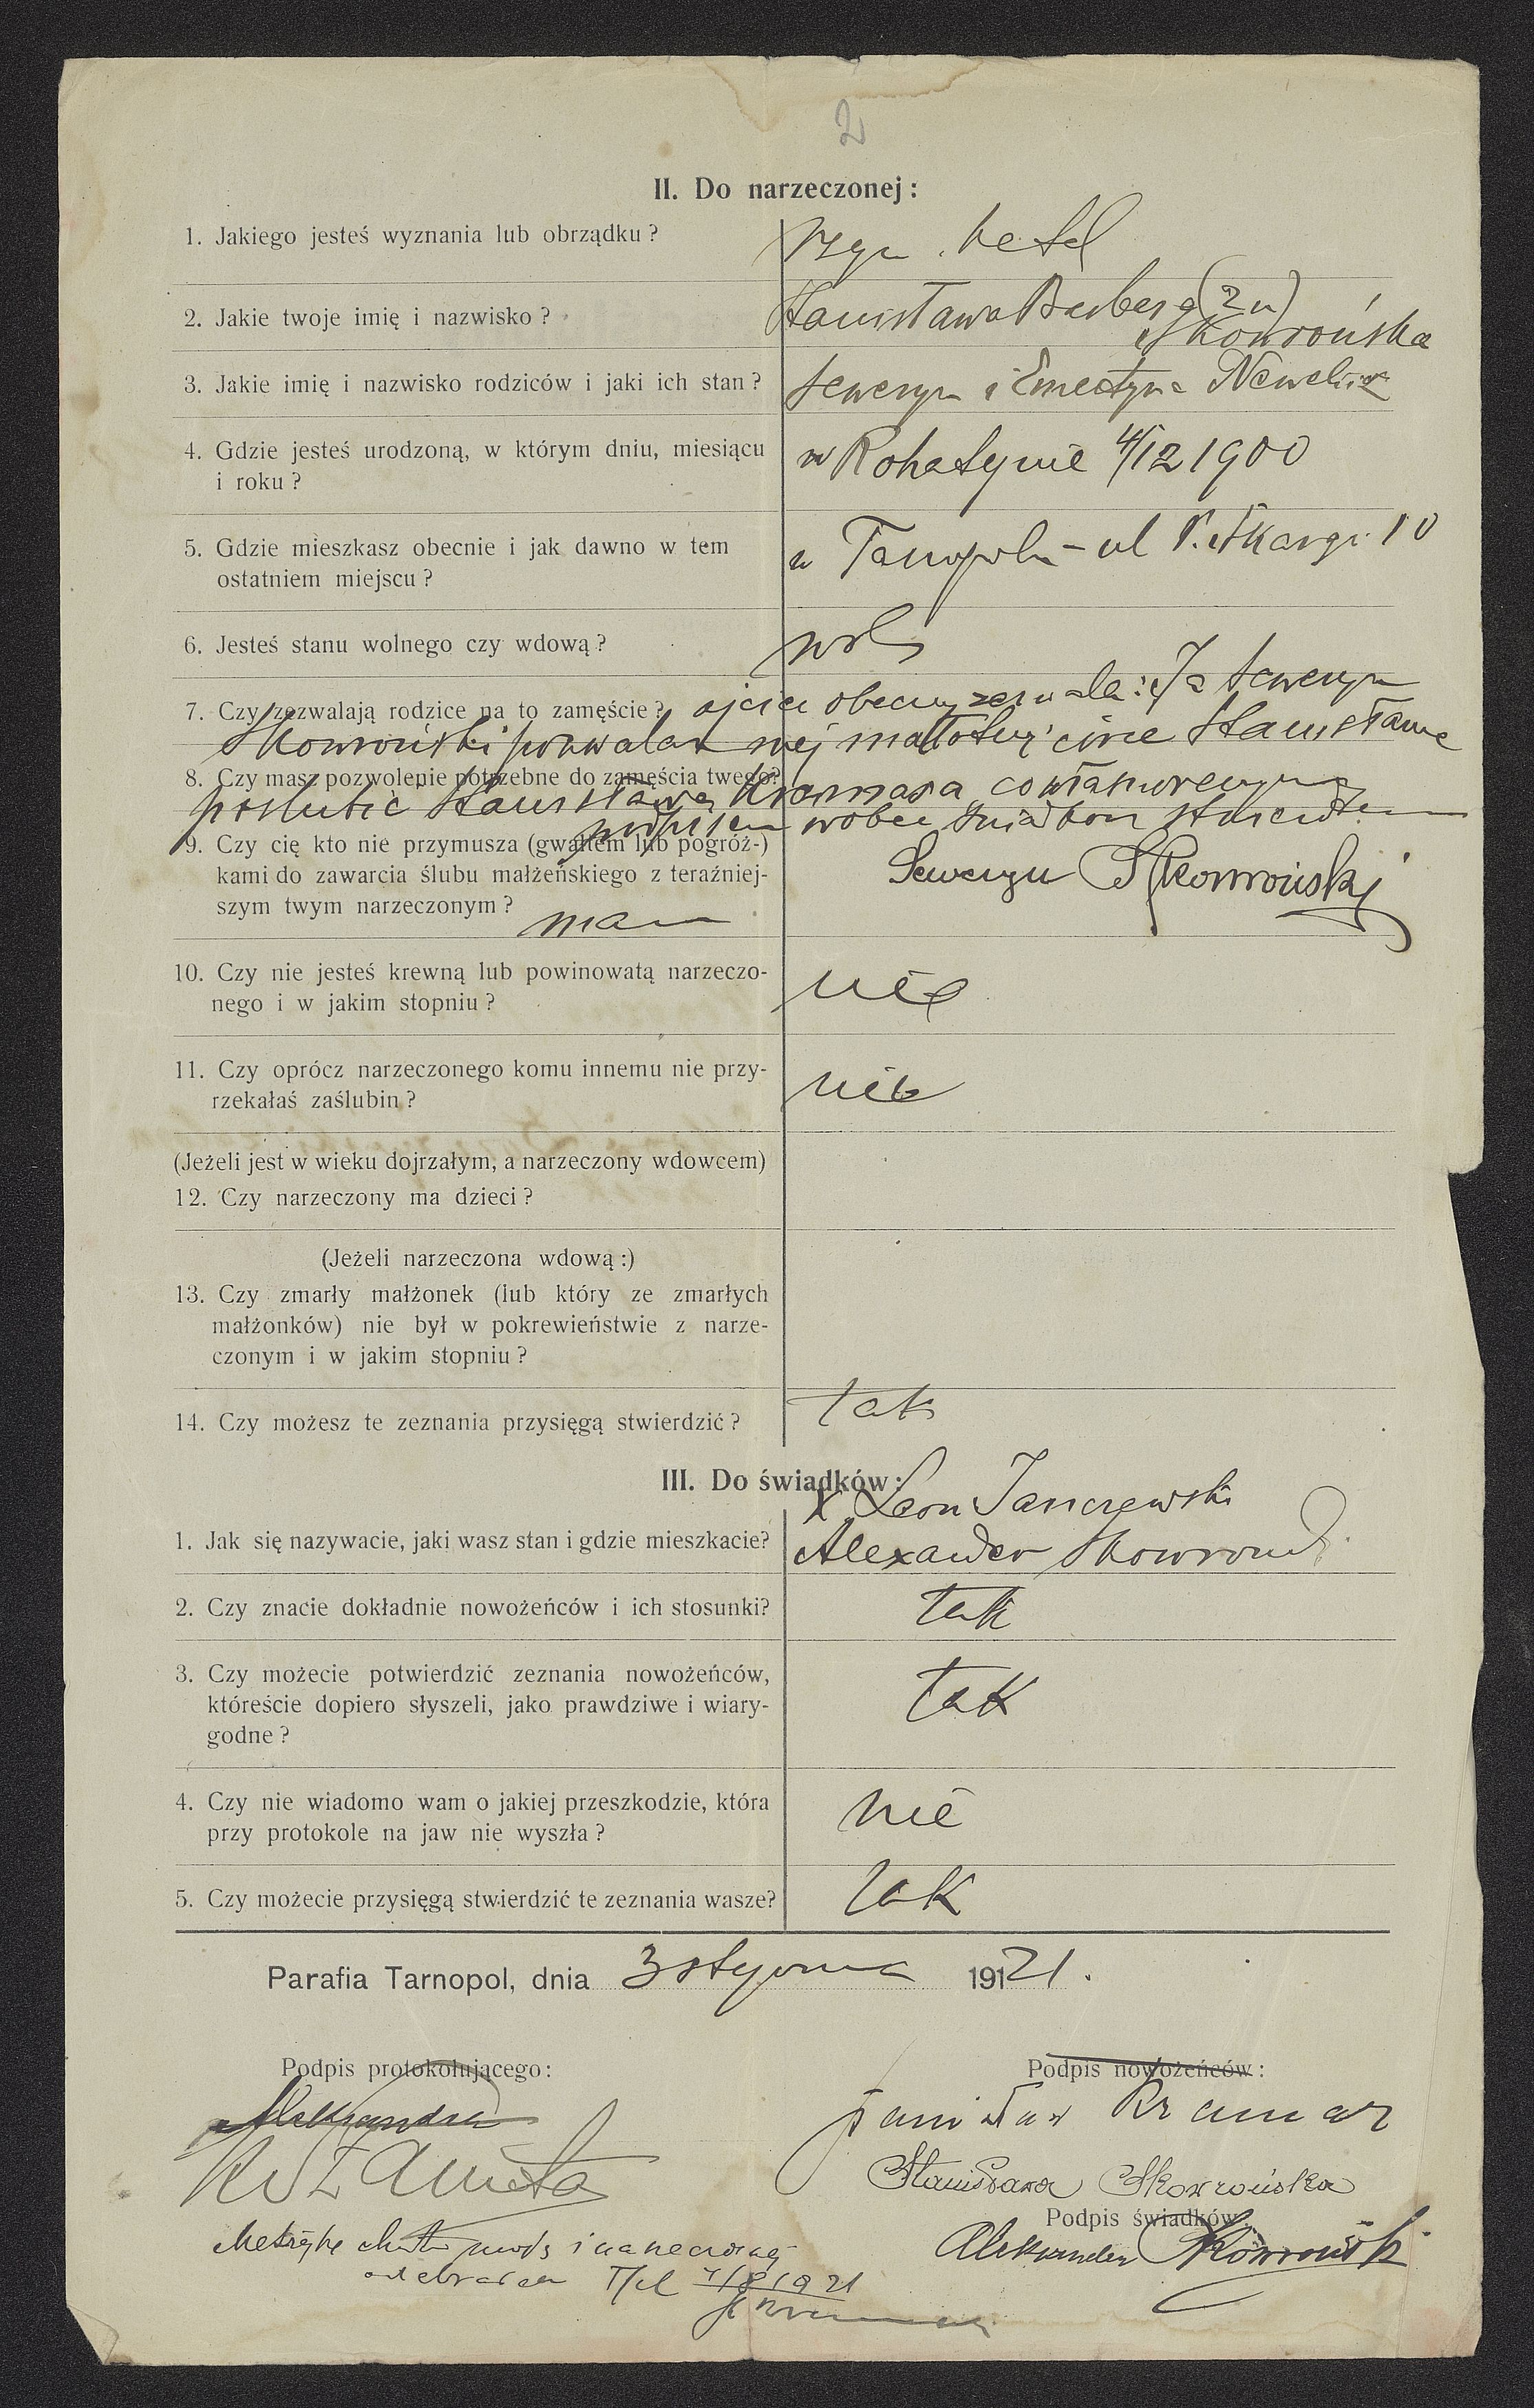 2
II. Do narzeczonej:
1. Jakiego jesteś wyznania lub obrządku?
rzym. kat
2. Jakie twoje imię i nazwisko?
Stanisława Barbara (2 im)
Skowrońska
3. Jakie imię i nazwisko rodziców i jaki ich stan?
Seweryn i
4. Gdzie jesteś urodzoną, w którym dniu, miesiącu
i roku?
w Rohatynie 4/12 1900
5. Gdzie mieszkasz obecnie i jak dawno w tem
ostatniem miejscu?
w Tarnopolu - ul P. Skargi 10
6. Jesteś stanu wolnego czy wdową?
wol
7. Czy zezwalają rodzice na to zamęście?
ojciec obecny zezwala: Ja Seweryn
Skowroński pozwalam mej małoletniej córce Stanisławie
8. Czy masz pozwolenie potrzebne do zamęścia twego?
poślubić Stanisława Kramara co własnoręcznym
podpisem wobec świadków stwierdzam
9. Czy cię kto nie przymusza (gwałtem lub pogróż-)
kami do zawarcia ślubu małżeńskiego z teraźniej-
szym twym narzeczonym?
Seweryn Skowroński
10. Czy nie jesteś krewną lub powinowatą narzeczo-
nego i w jakim stopniu?
nie
11. Czy oprócz narzeczonego komu innemu nie przy-
rzekałaś zaślubin?
nie
(Jeżeli jest w wieku dojrzałym, a narzeczony wdowcem)
12. Czy narzeczony ma dzieci?
(Jeżeli narzeczona wdową:)
13. Czy zmarły małżonek (lub który ze zmarłych
małżonków) nie był w pokrewieństwie z narze-
czonym i w jakim stopniu?
14. Czy możesz te zeznania przysięgą stwierdzić?
tak
III. Do świadków:
X Leon Janczewski
1. Jak się nazywacie, jaki wasz stan i gdzie mieszkacie?
Alexander Skowroński
2. Czy znacie dokładnie nowożeńców i ich stosunki?
tak
3. Czy możecie potwierdzić zeznania nowożeńców,
któreście dopiero słyszeli, jako prawdziwe i wiary-
godne?
tak
4. Czy nie wiadomo wam o jakiej przeszkodzie, która
przy protokole na jaw nie wyszła?
nie
5. Czy możecie przysięgą stwierdzić te zeznania wasze?
tak
Parafia Tarnopol, dnia 3 stycznia 19121.
Podpis protokołującego:
Podpis nowożeńców:
Aleksander
Stanisław Kramar
Stanisława Skowrońska
Podpis świadków:
Aleksander Skowroński
Metrykę chrztu moją i narzeczonej
odebrałem T/pol 4/8 1921